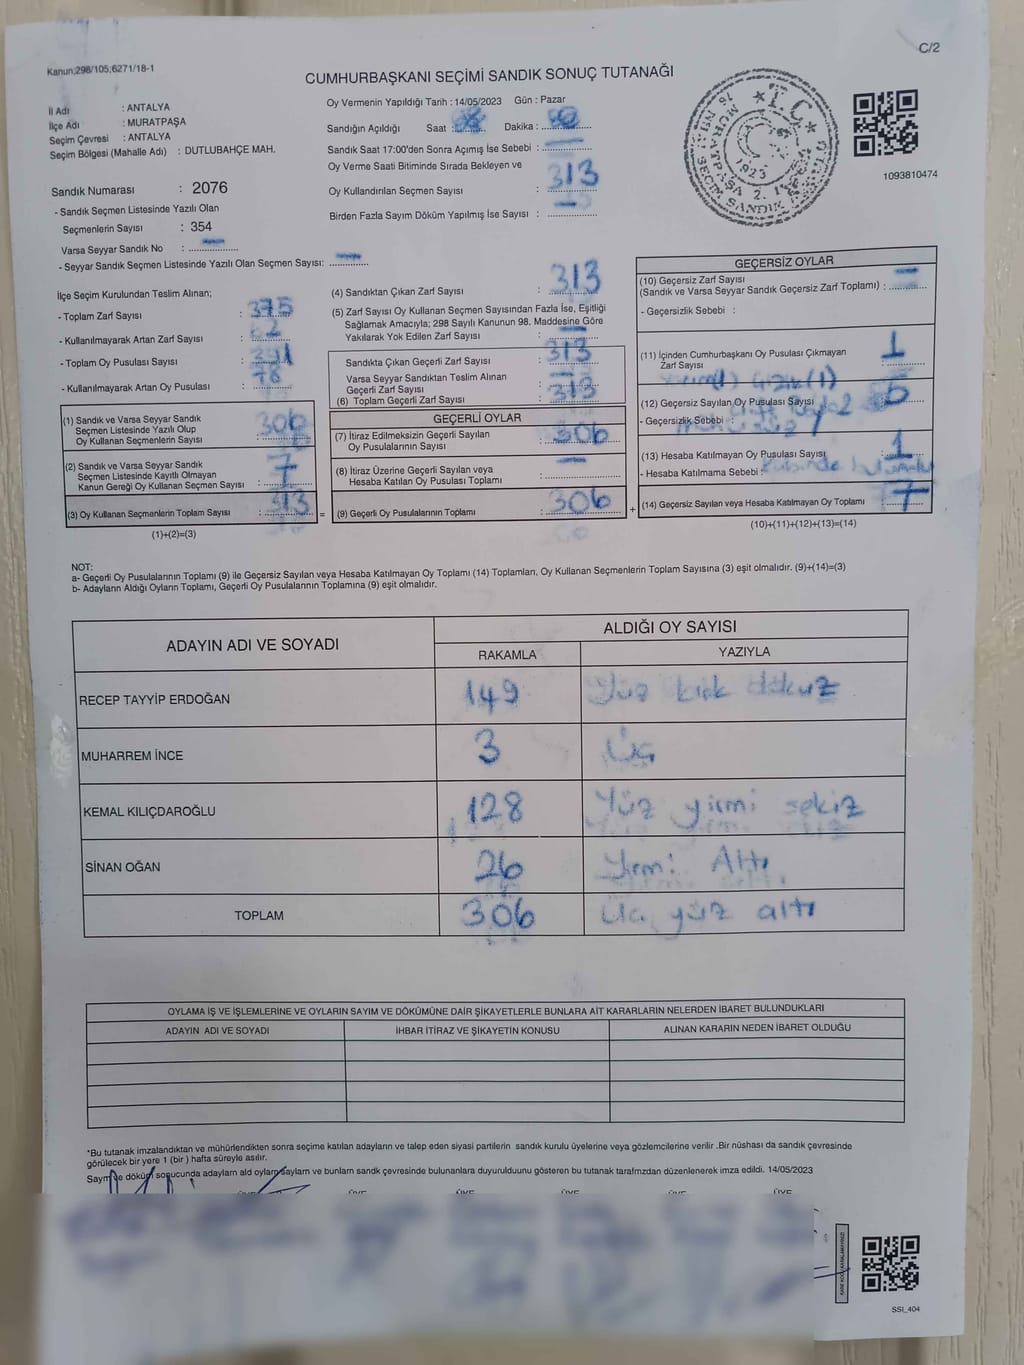 C/2
Kanun;298/105;6271/18-1
CUMHURBAŞKANI SEÇİMİ SANDIK SONUÇ TUTANAĞI
İl Adı : ANTALYA
İlçe Adı : MURATPAŞA
Seçim Çevresi : ANTALYA
Seçim Bölgesi (Mahalle Adı) : DUTLUBAHÇE MAH.
Sandık Numarası : 2076
- Sandık Seçmen Listesinde Yazılı Olan
Seçmenlerin Sayısı : 354
Varsa Seyyar Sandık No :
- Seyyar Sandık Seçmen Listesinde Yazılı Olan Seçmen Sayısı:
Oy Vermenin Yapıldığı Tarih : 14/05/2023 Gün : Pazar
Sandığın Açıldığı Saat : Dakika :
Sandık Saat 17:00'den Sonra Açımış İse Sebebi :
Oy Verme Saati Bitiminde Sırada Bekleyen ve
Oy Kullandırılan Seçmen Sayısı : 313
Birden Fazla Sayım Döküm Yapılmış İse Sayısı :
T.C.
1923
1093810474
İlçe Seçim Kurulundan Teslim Alınan;
- Toplam Zarf Sayısı : 375
- Kullanılmayarak Artan Zarf Sayısı : 62
- Toplam Oy Pusulası Sayısı :
- Kullanılmayarak Artan Oy Pusulası : 78
(1) Sandık ve Varsa Seyyar Sandık
Seçmen Listesinde Yazılı Olup
Oy Kullanan Seçmenlerin Sayısı : 306
(2) Sandık ve Varsa Seyyar Sandık
Seçmen Listesinde Kayıtlı Olmayan
Kanun Gereği Oy Kullanan Seçmen Sayısı : 7
(3) Oy Kullanan Seçmenlerin Toplam Sayısı : 313
(1)+(2)=(3)
(4) Sandıktan Çıkan Zarf Sayısı : 313
(5) Zarf Sayısı Oy Kullanan Seçmen Sayısından Fazla İse, Eşitliği
Sağlamak Amacıyla; 298 Sayılı Kanunun 98. Maddesine Göre
Yakılarak Yok Edilen Zarf Sayısı :
Sandıkta Çıkan Geçerli Zarf Sayısı : 313
Varsa Seyyar Sandıktan Teslim Alınan
Geçerli Zarf Sayısı :
(6) Toplam Geçerli Zarf Sayısı : 313
GEÇERLİ OYLAR
(7) İtiraz Edilmeksizin Geçerli Sayılan
Oy Pusulalarının Sayısı : 306
(8) İtiraz Üzerine Geçerli Sayılan veya
Hesaba Katılan Oy Pusulası Toplamı :
= (9) Geçerli Oy Pusulalarının Toplamı : 306 +
GEÇERSİZ OYLAR
(10) Geçersiz Zarf Sayısı
(Sandık ve Varsa Seyyar Sandık Geçersiz Zarf Toplamı) :
- Geçersizlik Sebebi :
(11) İçinden Cumhurbaşkanı Oy Pusulası Çıkmayan
Zarf Sayısı : 1
(12) Geçersiz Sayılan Oy Pusulası Sayısı
- Geçersizlik Sebebi :
(13) Hesaba Katılmayan Oy Pusulası Sayısı : 1
- Hesaba Katılmama Sebebi :
(14) Geçersiz Sayılan veya Hesaba Katılmayan Oy Toplamı : 7
(10)+(11)+(12)+(13)=(14)
NOT:
a- Geçerli Oy Pusulalarının Toplamı (9) ile Geçersiz Sayılan veya Hesaba Katılmayan Oy Toplamı (14) Toplamları, Oy Kullanan Seçmenlerin Toplam Sayısına (3) eşit olmalıdır. (9)+(14)=(3)
b- Adayların Aldığı Oyların Toplamı, Geçerli Oy Pusulalarının Toplamına (9) eşit olmalıdır.
ADAYIN ADI VE SOYADI
ALDIĞI OY SAYISI
RAKAMLA YAZIYLA
RECEP TAYYİP ERDOĞAN 149 Yüz kırk dokuz
MUHARREM İNCE 3 Üç
KEMAL KILIÇDAROĞLU 128 Yüz yirmi sekiz
SİNAN OĞAN 26 Yirmi Altı
TOPLAM 306 Üç yüz altı
OYLAMA İŞ VE İŞLEMLERİNE VE OYLARIN SAYIM VE DÖKÜMÜNE DAİR ŞİKAYETLERLE BUNLARA AİT KARARLARIN NELERDEN İBARET BULUNDUKLARI
ADAYIN ADI VE SOYADI İHBAR İTİRAZ VE ŞİKAYETİN KONUSU ALINAN KARARIN NEDEN İBARET OLDUĞU
*Bu tutanak imzalandıktan ve mühürlendikten sonra seçime katılan adayların ve talep eden siyasi partilerin sandık kurulu üyelerine veya gözlemcilerine verilir .Bir nüshası da sandık çevresinde
görülecek bir yere 1 (bir ) hafta süreyle asılır.
Sayım ve döküm sonucunda adayların ald oyların saylam ve bunlarn sandk çevresinde bulunanlara duyurulduunu gösteren bu tutanak tarafmzdan düzenlenerek imza edildi. 14/05/2023
ÜYE ÜYE ÜYE ÜYE ÜYE
SSI_404